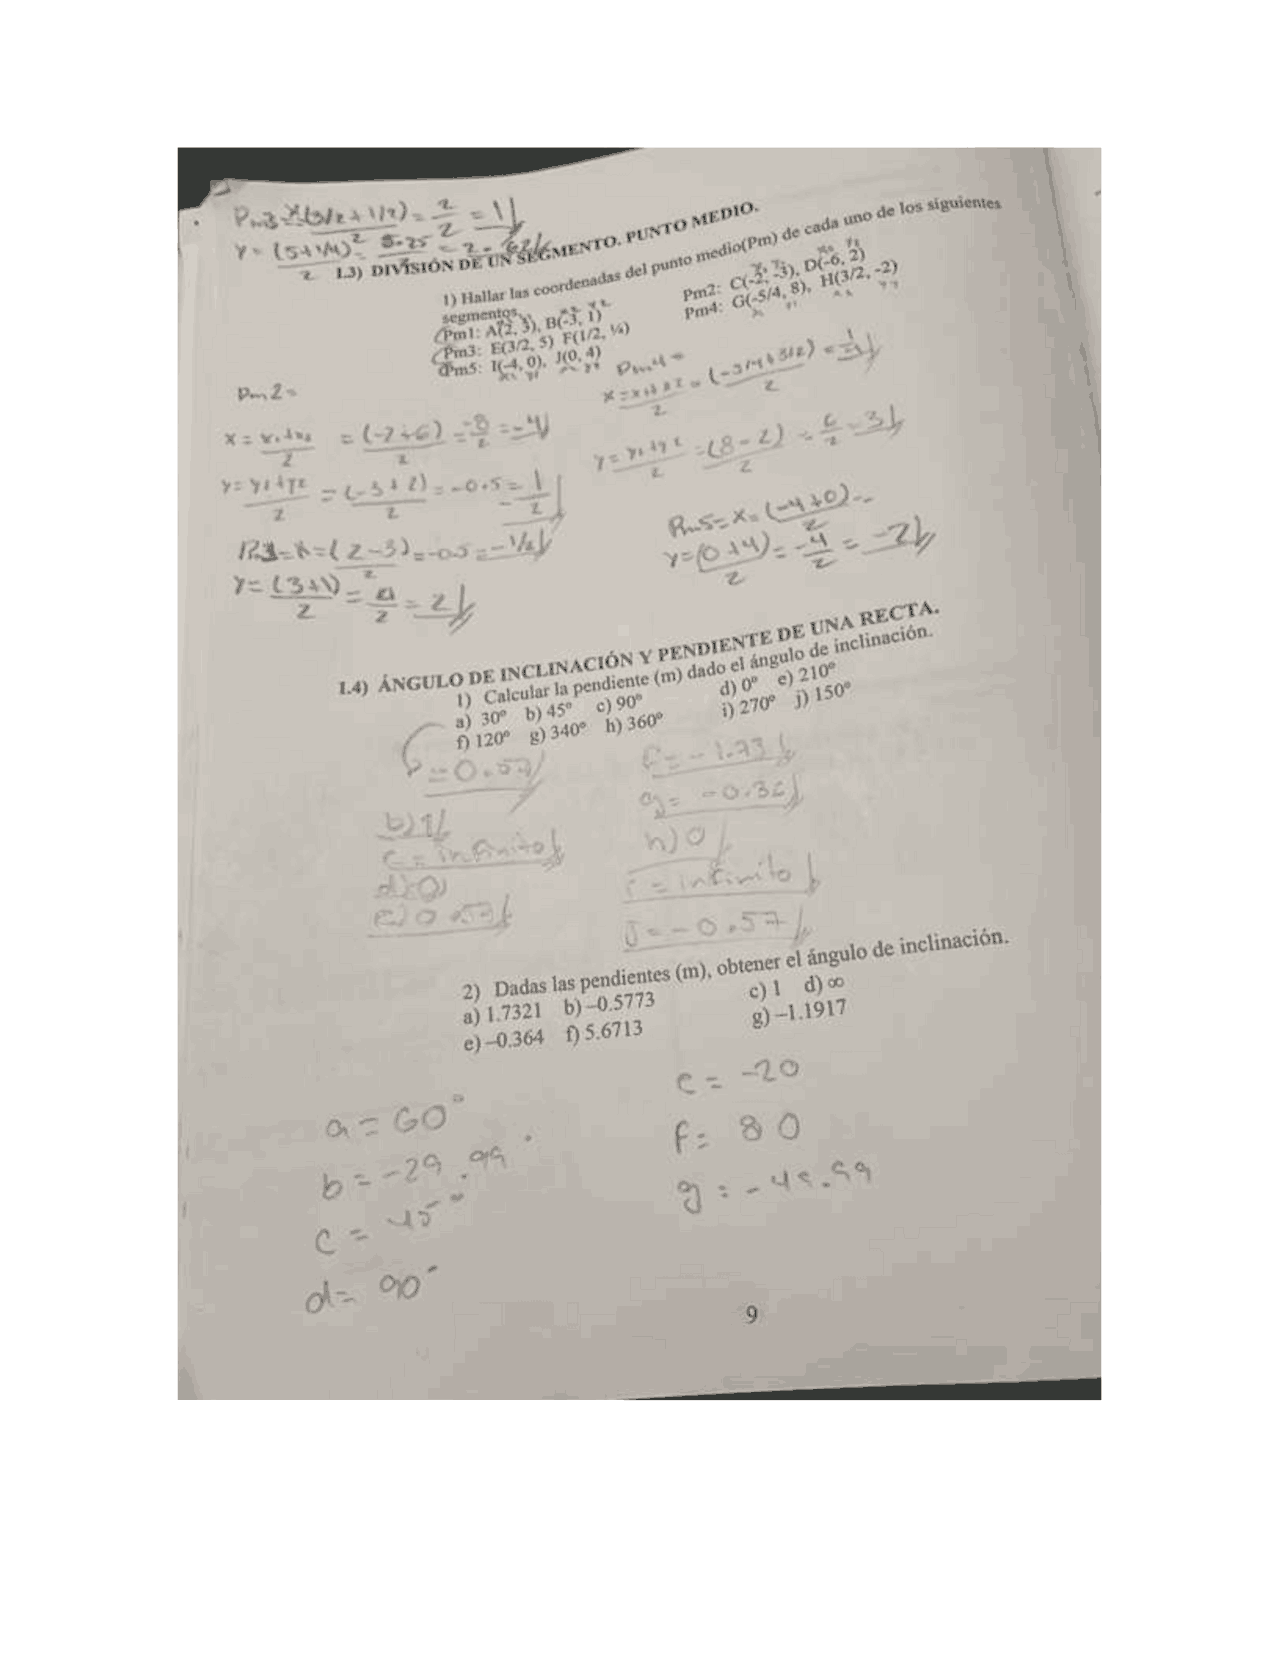 Pm3 = X(3/2 + 1/2) = 2/2 = 1
Y = (5+1/4)/2 = 5.25/2 = 2.62
I.3) DIVISIÓN DE UN SEGMENTO. PUNTO MEDIO.
1) Hallar las coordenadas del punto medio(Pm) de cada uno de los siguientes
segmentos.
Pm1: A(2, 3), B(-3, 1) Pm2: C(-2, -3), D(-6, 2)
Pm3: E(3/2, 5) F(1/2, ¼) Pm4: G(-5/4, 8), H(3/2, -2)
Pm5: I(-4, 0), J(0, 4)
Pm2= Pm4=
X = x1+x2/2 = (-2+6)/2 = -8/2 = -4
Y = y1+y2/2 = (-3+2)/2 = -0.5 = -1/2
Y = y1+y2/2 = (8-2)/2 = 6/2 = 3
X = (2-3)/2 = -0.5 = -1/2
Y = (3+1)/2 = 4/2 = 2
Pm5 = X = (-4+0)/2 =
Y = (0+4)/2 = -4/2 = -2
I.4) ÁNGULO DE INCLINACIÓN Y PENDIENTE DE UNA RECTA.
1) Calcular la pendiente (m) dado el ángulo de inclinación.
a) 30º b) 45º c) 90º d) 0º e) 210º
f) 120º g) 340º h) 360º i) 270º j) 150º
= 0.57
b) 1
c = infinito
d) 0
e) 0.57
f = -1.73
g = -0.36
h) 0
i = infinito
J = -0.57
2) Dadas las pendientes (m), obtener el ángulo de inclinación.
a) 1.7321 b) –0.5773 c) 1 d) ∞
e) –0.364 f) 5.6713 g) –1.1917
a = 60°
b = -29.99°
c = 45°
d = 90°
e = -20
f = 80
g = -49.99
9